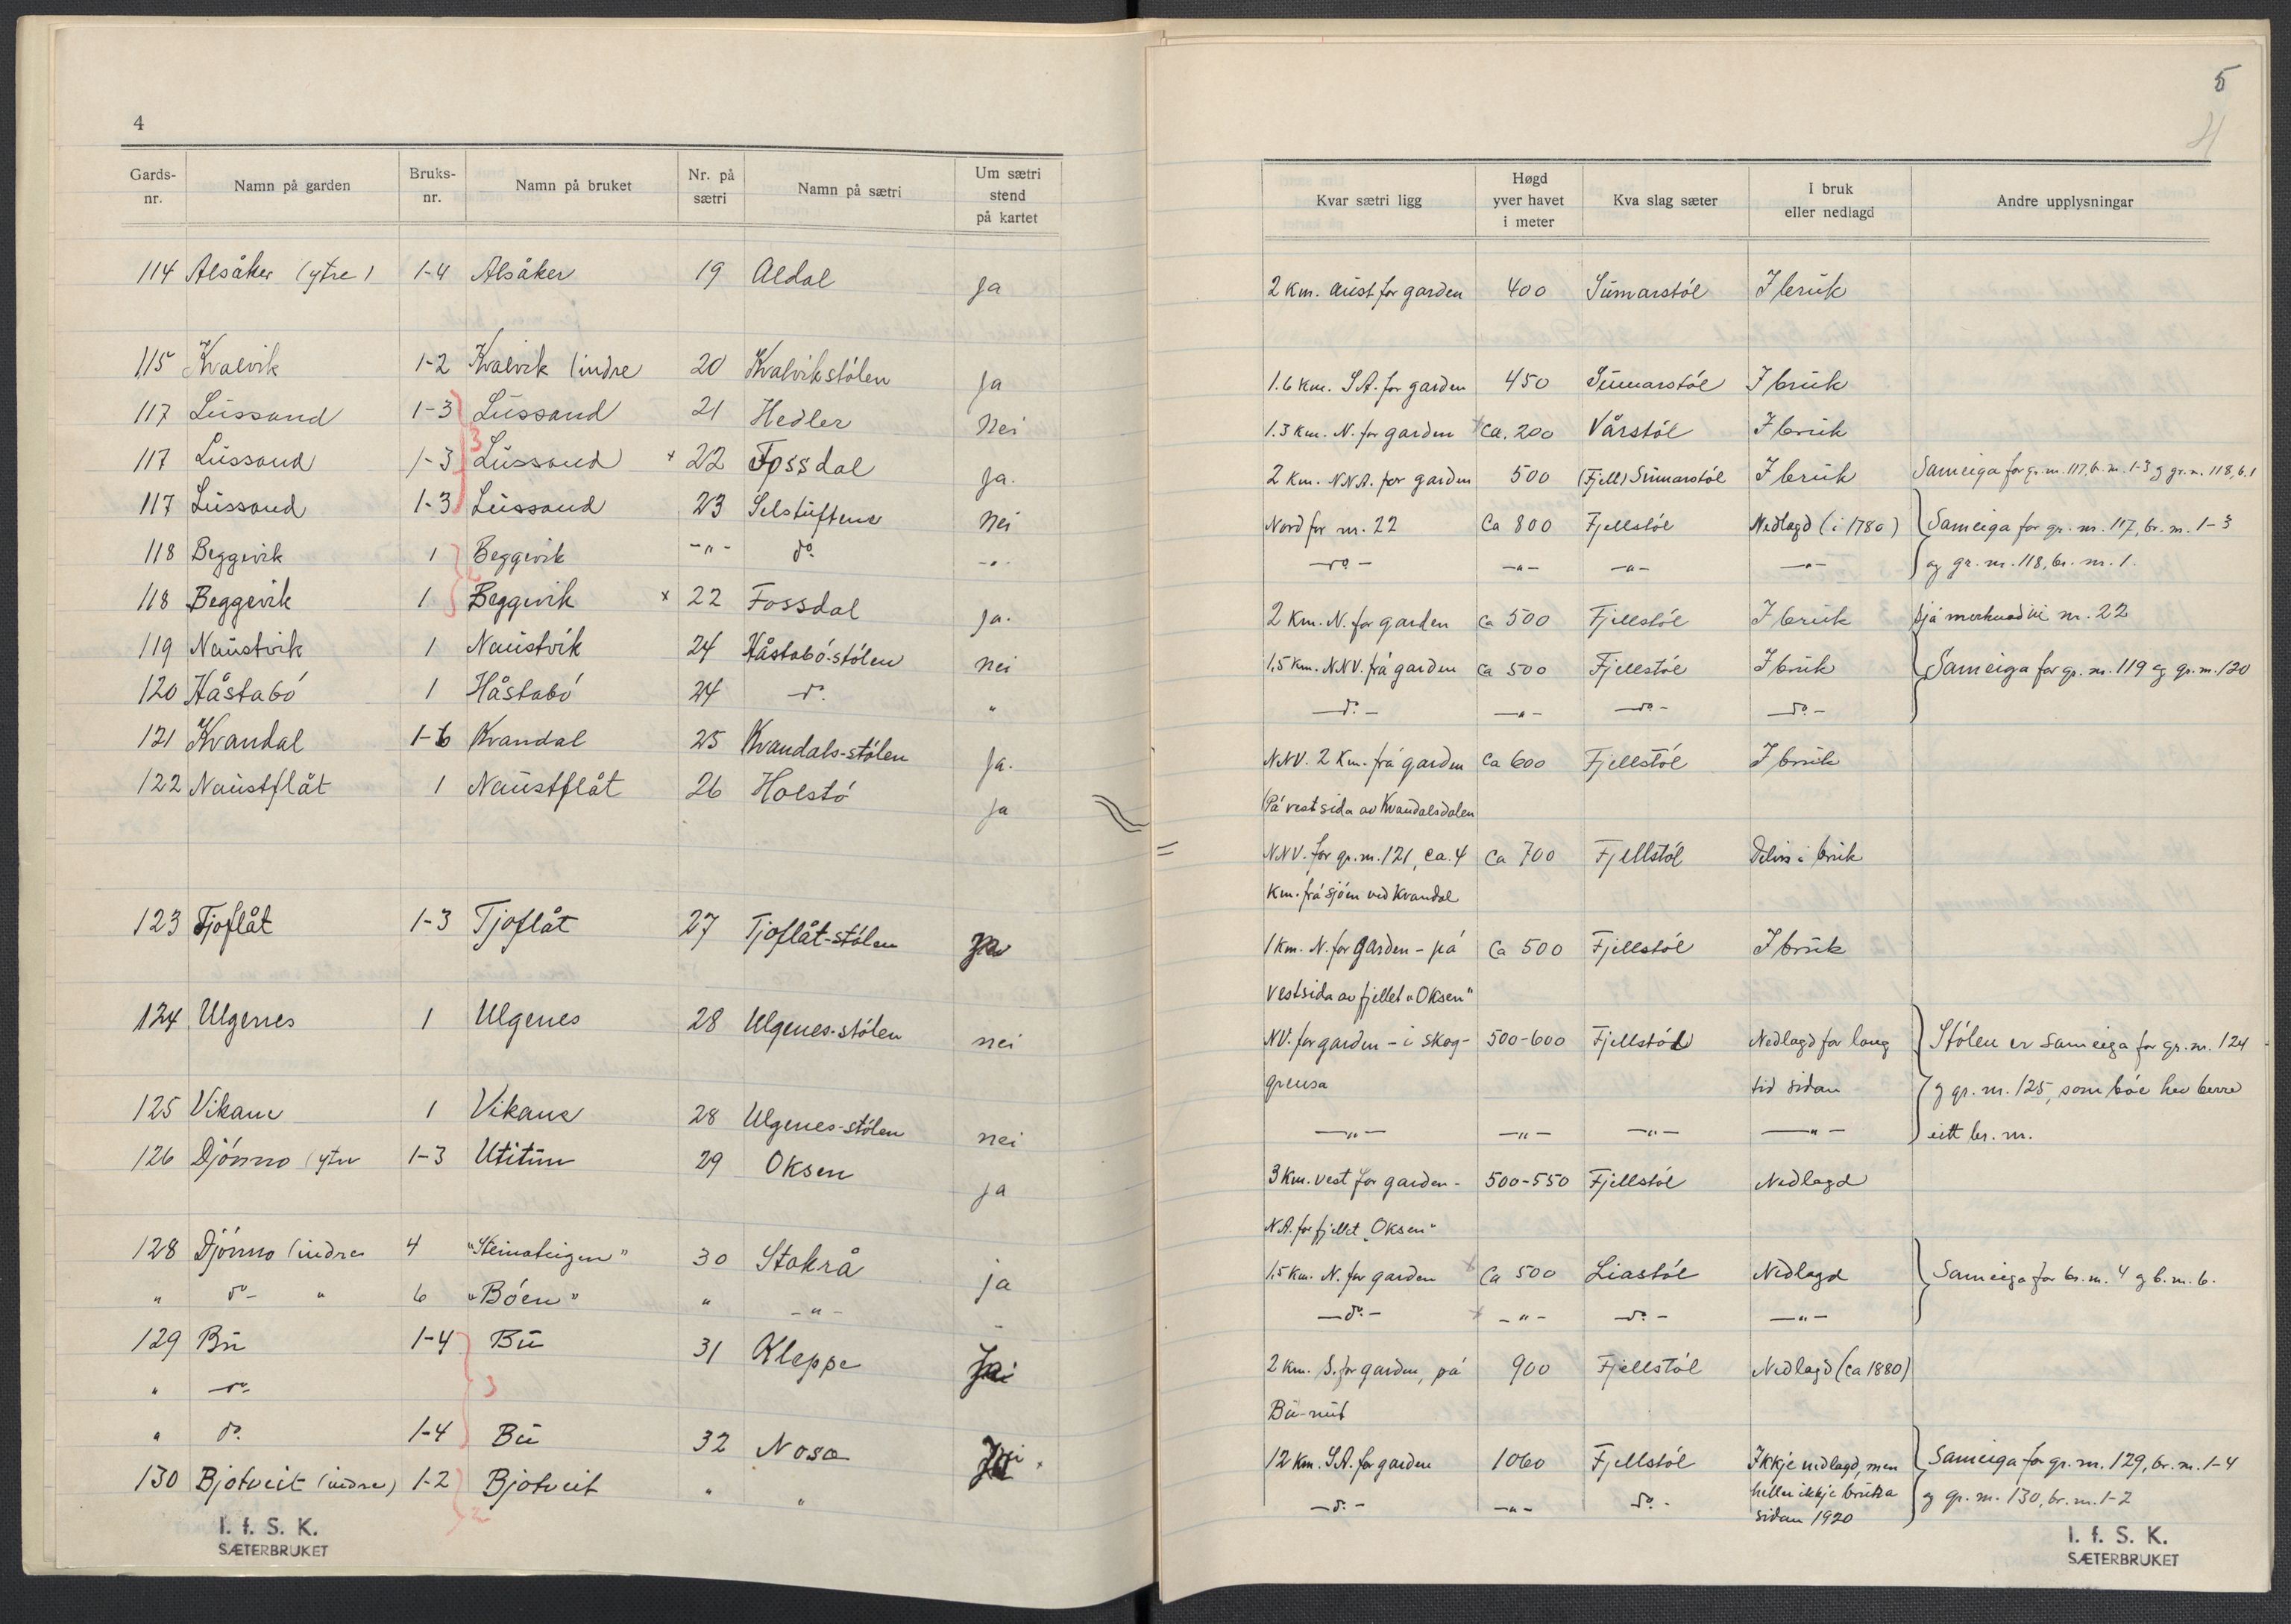 4
Gards-nr. Namn på garden Bruks-nr. Namn på bruket Nr. på sætri Namn på sætri Um sætri stend på kartet
114 Alsåker (ytre) 1-4 Alsåker 19 Aldal ja
115 Kvalvik 1-2 Kvalvik (indre 20 Kvalvikstölen ja
117 Lussand 1-3 Lussand 21 Hedler nei
3
117 Lussand 1-3 Lussand × 22 Fossdal ja.
117 Lussand 1-3 Lussand 23 Selstuftene nei
118 Beggevik 1 Beggevik -"- do. -"-
2
118 Beggevik 1 Beggevik × 22 Fossdal ja.
119 Naustvik 1 Naustvik 24 Håstabö-stölen nei
120 Håstabö 1 Håstabö 24 do. "
121 Kvandal 1-6 Kvandal 25 Kvandals-stölen ja.
122 Naustflåt 1 Naustflåt 26 Holstö ja
123 Tjoflåt 1-3 Tjoflåt 27 Tjoflåt-stölen ja
124 Ulgenes 1 Ulgenes 28 Ulgenes-stölen nei
125 Vikane 1 Vikane 28 Ulgenes-stölen nei
126 Djönno (ytre 1-3 Utitun 29 Oksen ja
128 Djönno (indre 4 "Steinateigen" 30 Stokrå ja
" do- " 6 "Böen" " -"- -
129 Bu 1-4 Bu 31 Kleppe
" do. 3
" do. 1-4 Bu 32 Nosa
130 Bjotveit (indre) 1-2 Bjotveit " "
2
I. f. S. K.
SÆTERBRUKET
5
4
Kvar sætri ligg Høgd yver havet i meter Kva slag sæter I bruk eller nedlagd Andre upplysningar
2 km. aust for garden 400 Sumarstöl I bruk
1.6 km. S.A. for garden 450 Sumarstöl I bruk
1.3 km. N. for garden ca. 200 Vårstöl I bruk
2 km. N.N.A. for garden 500 (Fjell) Sumarstöl I bruk Sameiga for gr. nr. 117, br. nr. 1-3 og gr. nr. 118, b. 1
Nord for nr. 22 Ca 800 Fjellstöl Nedlagd (i 1780) Sameiga for gr. nr. 117, br. nr. 1-3
-do- -"- -"- -"- og gr. nr. 118, br. nr. 1.
2 km. N. for garden ca 500 Fjellstöl I bruk sjå merknad vi nr. 22
1.5 km. NNV. frå garden ca 500 Fjellstöl I bruk Sameiga for gr. nr. 119 og gr. nr. 120
-do.- -"- -do.- -do.-
NNV. 2 km. frå garden ca 600 Fjellstöl I bruk
(På vestsida av Kvandalsdalen
NNV. for gr. nr. 121, ca. 4 Ca 700 Fjellstöl Delvis i bruk
km. frå sjöen ved Kvandal
1 km. N. for garden - på Ca 500 Fjellstöl I bruk
vestsida av fjellet "Oksen"
NV. for garden - i skog- 500-600 Fjellstöl Nedlagd for long Stölen er sameiga for gr. nr. 124
grensa tid sidan og gr. nr. 125, som båe hev berre
-"- -"- -"- -"- eitt br. nr.
3 km. vest for garden - 500-550 Fjellstöl Nedlagd
N.A. for fjellet "Oksen"
1.5 km. N. for garden Ca 500 Liastöl Nedlagd Sameiga for br. nr. 4 og b. nr. 6.
-do.- -"- -do.- -"-
2 km. S. for garden, på 900 Fjellstöl Nedlagd (ca 1880)
Bu-nut
12 km. S.A. for garden 1060 Fjellstöl Ikkje nedlagd, men Sameiga for gr. nr. 129, br. nr. 1-4
-do.- -"- do.- heller ikkje bruka og gr. nr. 130, br. nr. 1-2
sidan 1920
I. f. S. K.
SÆTERBRUKET